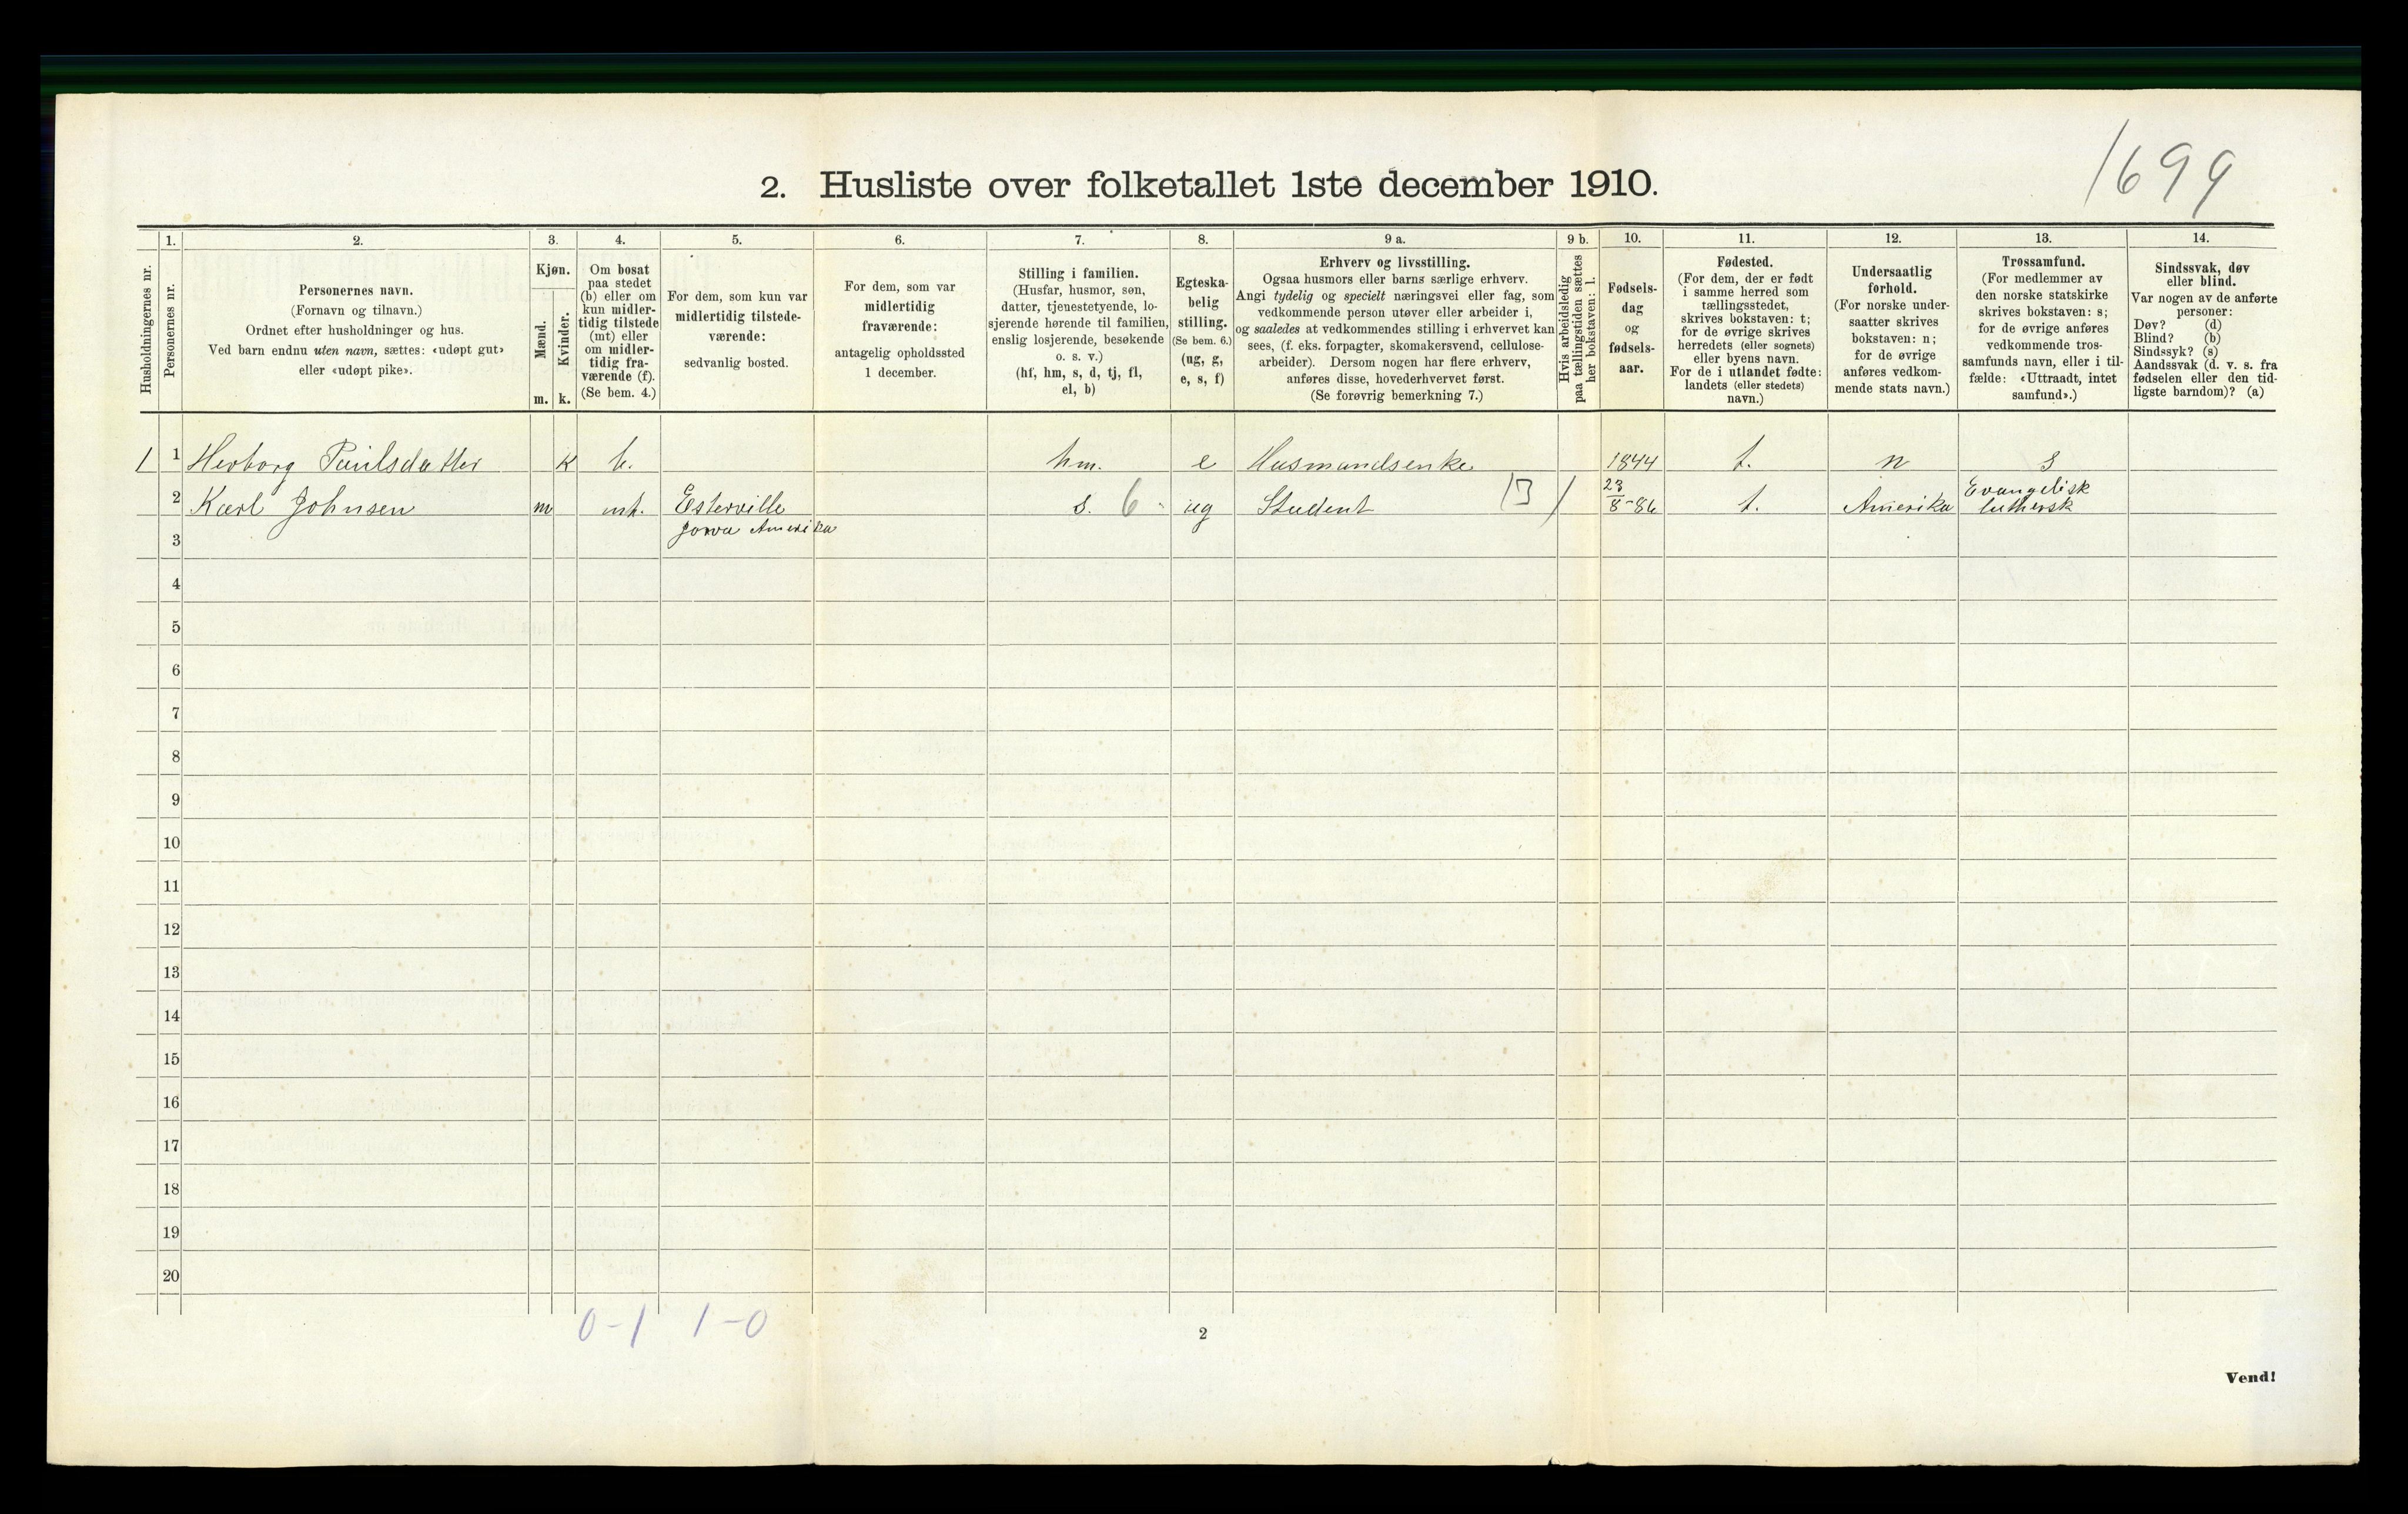 1699
2. Husliste over folketallet 1ste december 1910.
Husholdningernes nr.
1.
Personernes nr.
2.
Personernes navn.
(Fornavn og tilnavn.)
Ordnet efter husholdninger og hus.
Ved barn endnu uten navn, sættes: «udøpt gut»
eller «udøpt pike».
3.
Kjøn.
Mænd.
Kvinder.
m. k.
4.
Om bosat
paa stedet
(b) eller om
kun midler-
tidig tilstede
(mt) eller
om midler-
tidig fra-
værende (f).
(Se bem. 4.)
5.
For dem, som kun var
midlertidig tilstede-
værende:
sedvanlig bosted.
6.
For dem, som var
midlertidig
fraværende:
antagelig opholdssted
1 december.
7.
Stilling i familien.
(Husfar, husmor, søn,
datter, tjenestetyende, lo-
sjerende hørende til familien,
enslig losjerende, besøkende
o. s. v.)
(hf, hm, s, d, tj, fl,
el, b)
8.
Egteska-
belig
stilling.
(Se bem. 6.)
(ug, g,
e, s, f)
9 a.
Erhverv og livsstilling.
Ogsaa husmors eller barns særlige erhverv.
Angi tydelig og specielt næringsvei eller fag, som
vedkommende person utøver eller arbeider i,
og saaledes at vedkommendes stilling i erhvervet kan
sees, (f. eks. forpagter, skomakersvend, cellulose-
arbeider). Dersom nogen har flere erhverv,
anføres disse, hovederhvervet først.
(Se forøvrig bemerkning 7.)
9 b.
Hvis arbeidsledig
paa tællingstiden sættes
her bokstaven: l.
10.
Fødsels-
dag
og
fødsels-
aar.
11.
Fødested.
(For dem, der er født
i samme herred som
tællingsstedet,
skrives bokstaven: t;
for de øvrige skrives
herredets (eller sognets)
eller byens navn.
For de i utlandet fødte:
landets (eller stedets)
navn.)
12.
Undersaatlig
forhold.
(For norske under-
saatter skrives
bokstaven: n;
for de øvrige
anføres vedkom-
mende stats navn.)
13.
Trossamfund.
(For medlemmer av
den norske statskirke
skrives bokstaven: s;
for de øvrige anføres
vedkommende tros-
samfunds navn, eller i til-
fælde: «Uttraadt, intet
samfund».)
14.
Sindssvak, døv
eller blind.
Var nogen av de anførte
personer:
Døv? (d)
Blind? (b)
Sindssyk? (s)
Aandssvak (d. v. s. fra
fødselen eller den tid-
ligste barndom)? (a)
1 1 Herborg Paulsdatter k b. hm. e Husmandsenke 1844 t. n s
2 Karl Johnsen m mt. Esterville Jowa Amerika s. 6 ug Student 23/8-86 t. Amerika Evangelisk luthersk
3
4
5
6
7
8
9
10
11
12
13
14
15
16
17
18
19
20
0-1 1-0
2
Vend!